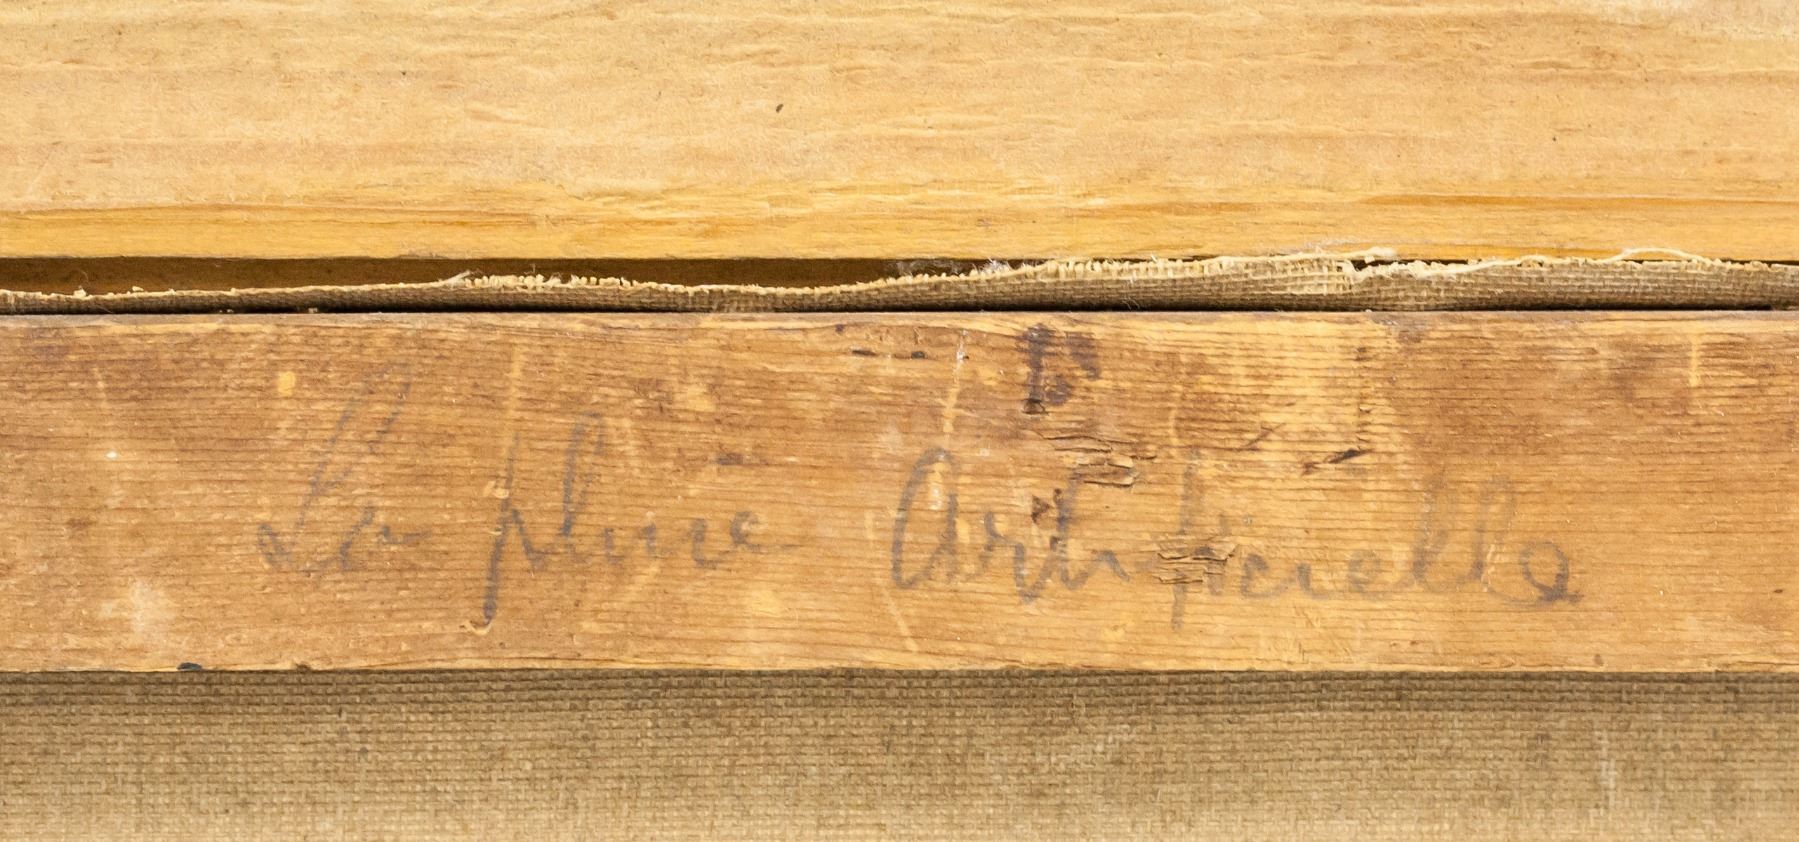 La pluie Artificielle